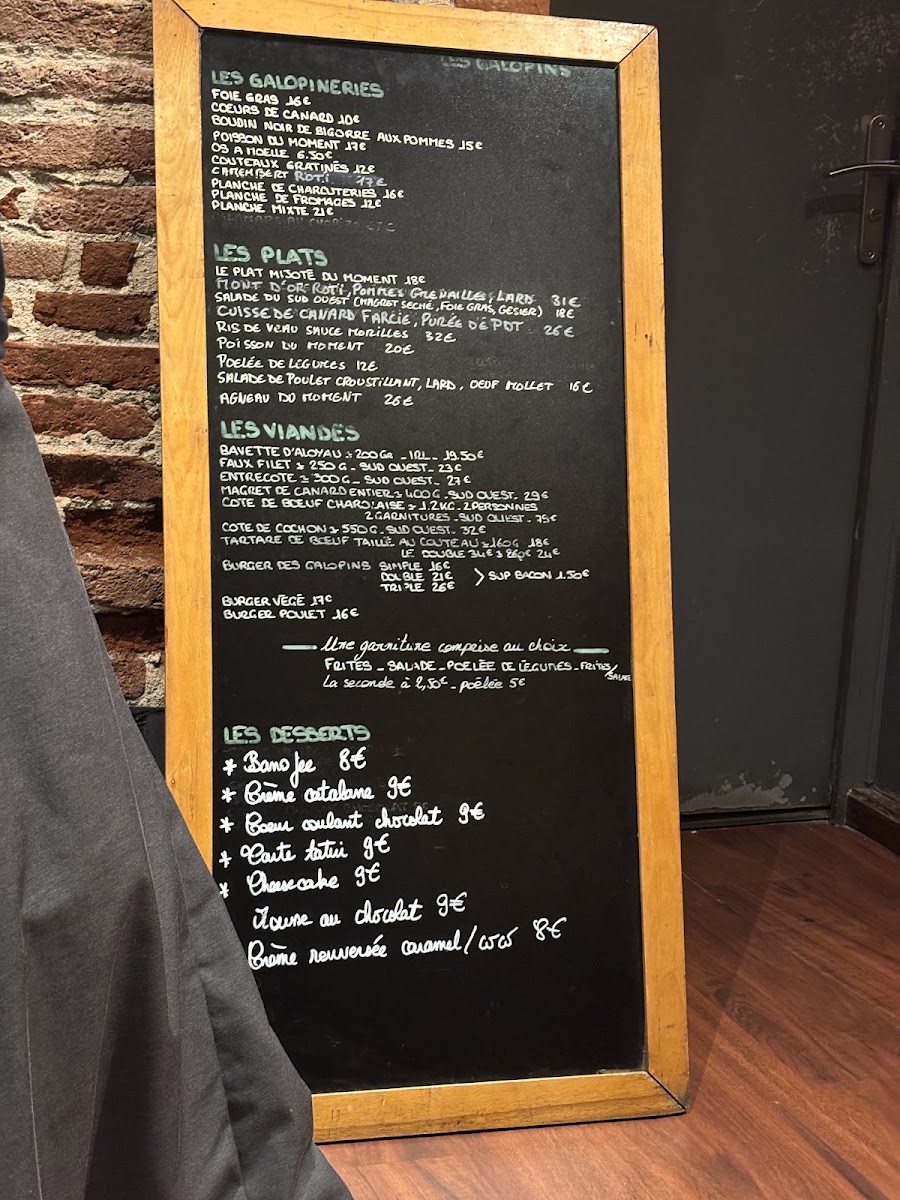 LES GALOPINS
LES GALOPINERIES
FOIE GRAS 16€
COEURS DE CANARD 10€
BOUDIN NOIR DE BIGORRE AUX POMMES 15€
POISSON DU MOMENT 17€
OS A MOELLE 6.50€
COUTEAUX GRATINÉS 12€
CAMEMBERT ROTI 17€
PLANCHE DE CHARCUTERIES 16€
PLANCHE DE FROMAGES 12€
PLANCHE MIXTE 21€
LES PLATS
LE PLAT MIJOTÉ DU MOMENT 18€
MONT D'OR ROTI, POMMES GRENAILLES, LARD 31€
SALADE DU SUD OUEST (MAGRET SECHÉ, FOIE GRAS, GESIER) 18€
CUISSE DE CANARD FARCIE, PURÉE DE PDT 26€
RIS DE VEAU SAUCE MORILLES 32€
POISSON DU MOMENT 20€
POELÉE DE LEGUMES 12€
SALADE DE POULET CROUSTILLANT, LARD, OEUF MOLLET 16€
AGNEAU DU MOMENT 26€
LES VIANDES
BAVETTE D'ALOYAU ± 200Gr - IRL - 19.50€
FAUX FILET ± 250 G - SUD OUEST - 23€
ENTRECOTE ± 300G - SUD OUEST - 27€
MAGRET DE CANARD ENTIER ± 400G - SUD OUEST - 29€
COTE DE BOEUF CHAROLAISE ± 1.2KG - 2 PERSONNES
2 GARNITURES - SUD OUEST - 79€
COTE DE COCHON ± 550 G - SUD OUEST - 32€
TARTARE DE BOEUF TAILLÉ AU COUTEAU ± 160G 18€
LE DOUBLE 34€
BURGER DES GALOPINS SIMPLE 16€
DOUBLE 21€ > SUP BACON 1.50€
TRIPLE 26€
BURGER VÉGÉ 17€
BURGER POULET 16€
Une garniture comprise au choix
FRITES - SALADE - POÊLÉE DE LÉGUMES - FRITES/SALADE
La seconde à 2,50€ - poêlée 5€
LES DESSERTS
* Banofee 8€
* Crème catalane 9€
* Coeur coulant chocolat 9€
* Tarte tatin 9€
* Cheesecake 9€
Mousse au chocolat 9€
Crème renversée caramel/coco 8€